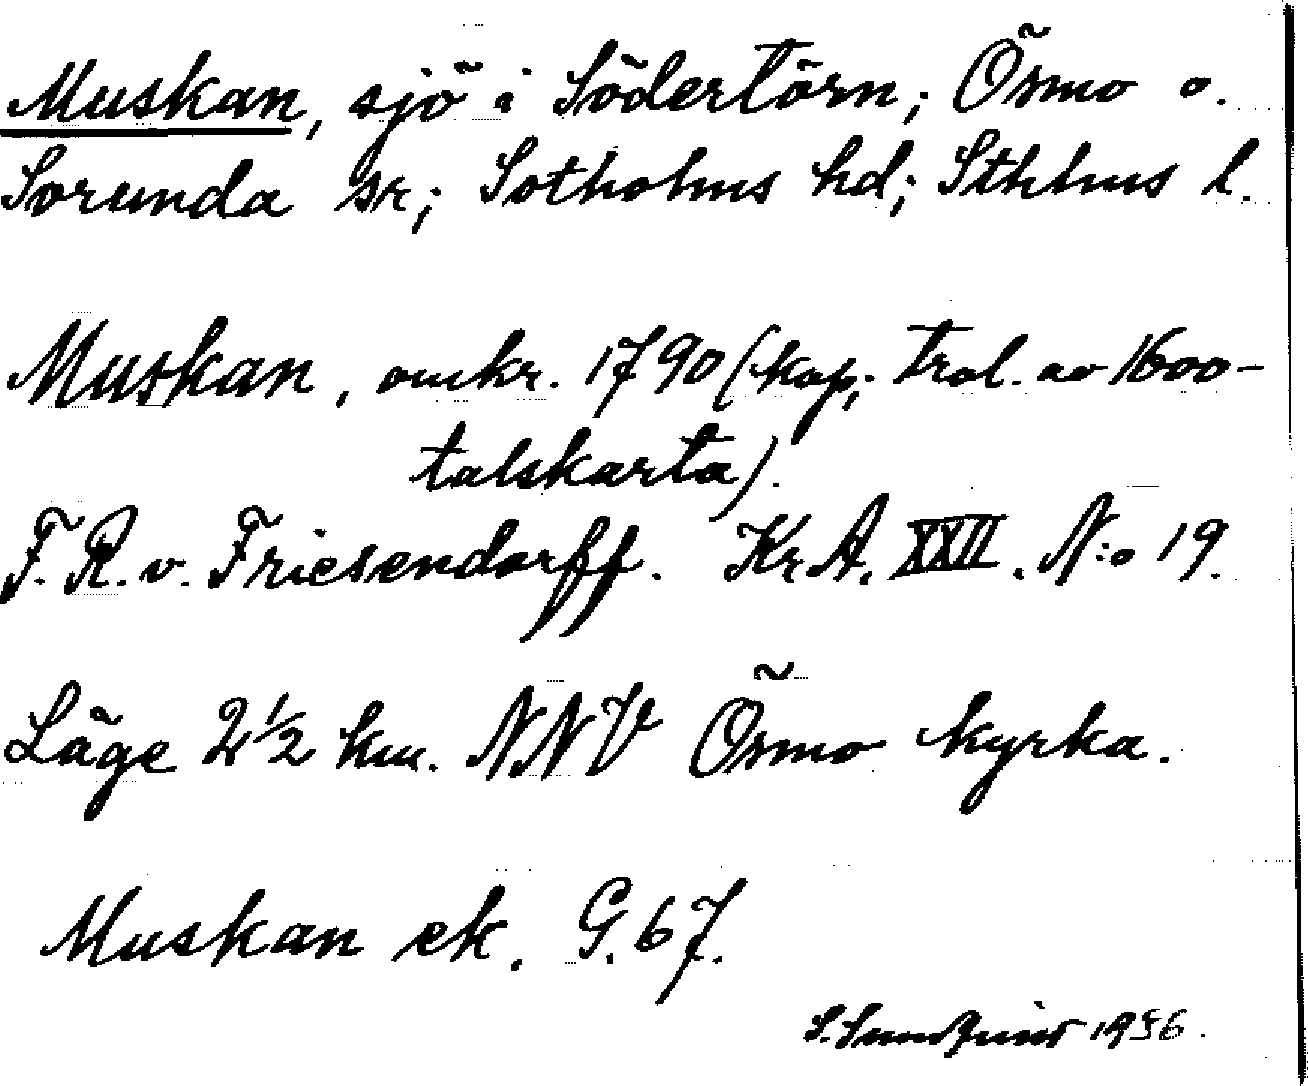 Muskan, sjö i Södertörn; Ösmo o.
Sorunda sr; Sotholms hd; Sthlms l.
Muskan, omkr. 1790 (kop; trol. av 1600-
talskarta).
F. R. v. Friesendorff. Kr.A. XXII. N:o 19.
Läge 2½ km. NNV Ösmo kyrka.
Muskan ek. G. 67.
S. Sundquist 1956.